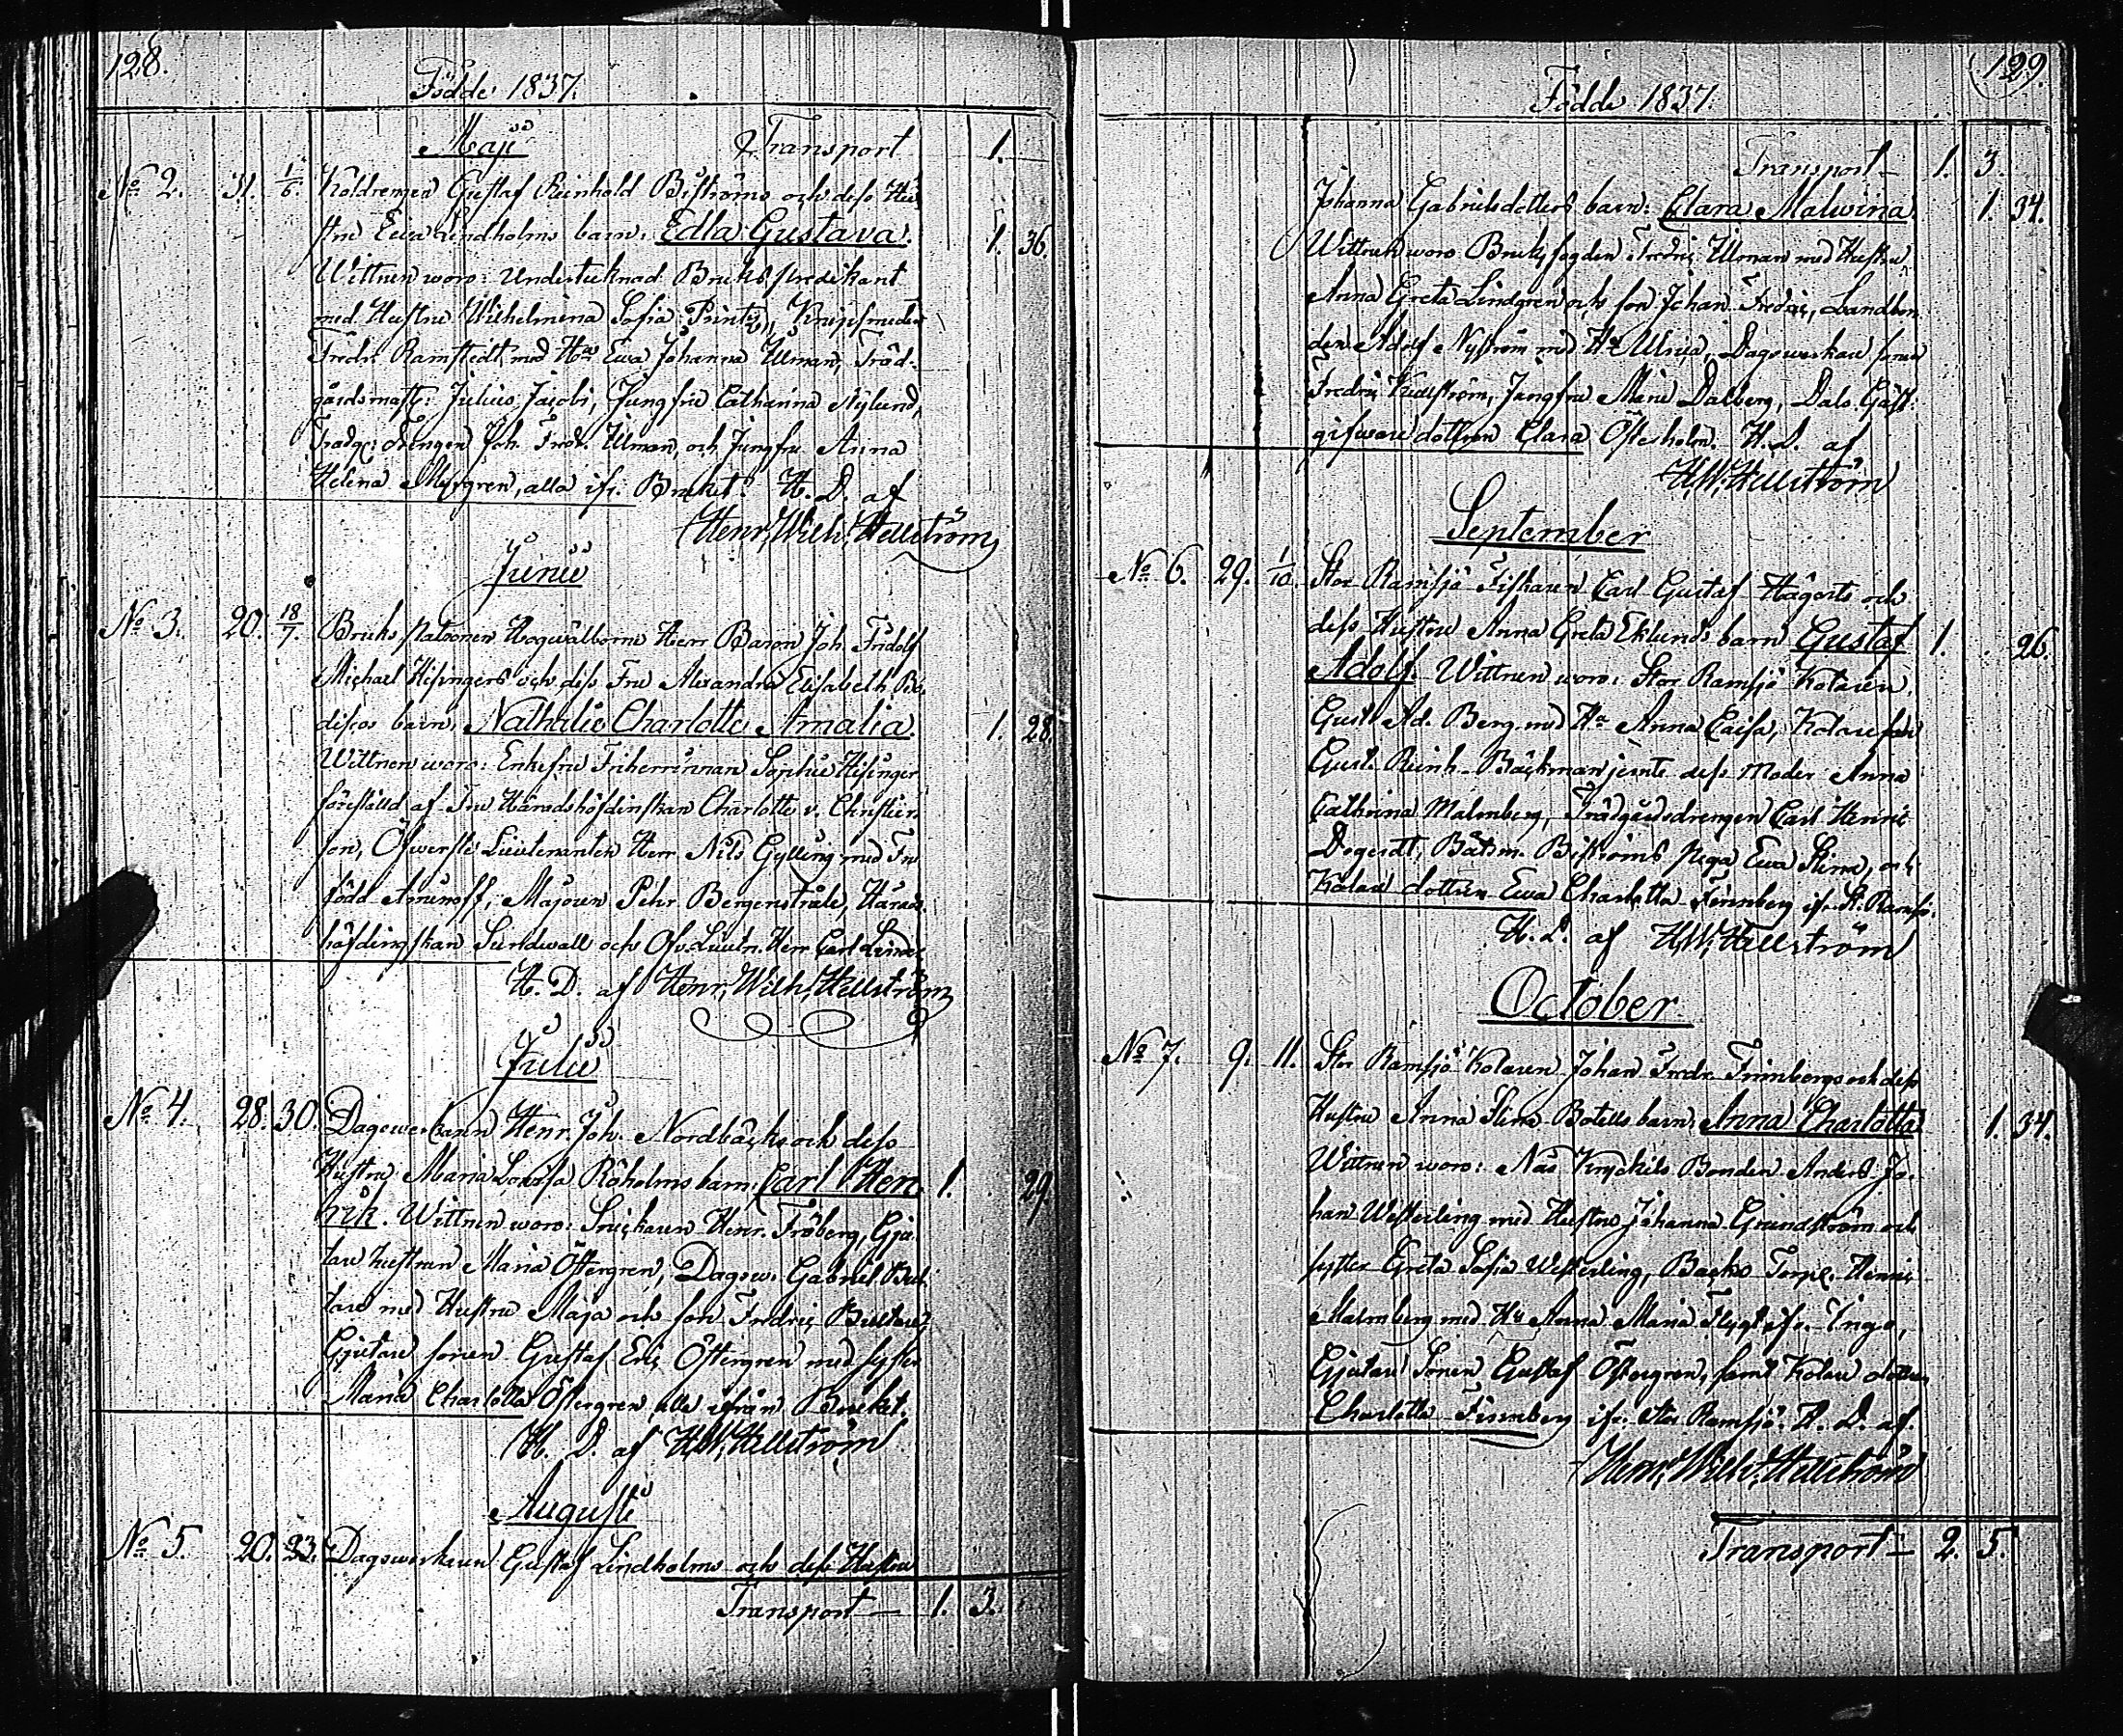 128.
Födde 1837.
Maji Transport 1.
No 2. 31. 1/6. Koldrengen Gustaf Reinhold Biströms och dess Hu-
stru Ewa Lindholms barn: Edla Gustava. 1. 36.
Wittnen woro: Undertecknad Bruks predikant
med Hustru Wilhelmina Sofia Printz, Knipsmeden
Fredr. Ramstedt med Hu Ewa Johanna Ulman, Träd-
gårdsmäst: Julius Jacobi, Jungfru Catharina Nylund,
Trädg: drengen Joh. Fredr. Ulman, och Jungfru Anna
Helena Myrgren, alla ifr. Bruket. H. D. af
Henr. Wilh. Hellström
Junii
No 3. 20. 18/7. Bruks patronen Högwälborne Herr Baron Joh. Fridolf
Michael Hisingers och dess Fru Alexandra Elisabeth Bo-
discos barn, Nathalie Charlotte Amalia. 1. 28.
Wittnen woro: Enkefru Friherrinnan Sophie Hisinger
föreställd af Fru Häradshöfdinskan Charlotte v. Christier-
son, Öfwerste Lieutenanten Herr Nils Gylling med Fru
född Aminoff, Majoren Pehr Bergenstråle, Härads-
höfdingskan Sundwall och Öfv. Lieutn. Herr Carl
H. D. af Henr. Wilh. Hellström
Julii
No 4. 28. 30. Dagswerkaren Henr. Joh. Nordbäcks och dess
Hustru Maria Lovisa Röholms barn: Carl Hen- 1. 29.
rik. Wittnen woro: Snickaren Henr. Fröberg, Gju-
tare hustrun Maria Östergren, Dagsw. Gabriel
med Hustru Maja och son Fredric
Gjutare sonen Gustaf Eric Östergren med syster
Maria Charlotta Östergren alla ifrån Bruket.
H. D. af H.W. Hellström
Augusti
No 5. 20. 23. Dagswerkaren Gustaf Lindholms och dess Hustru
Transport — 1. 3.
129.
Födde 1837.
Transport — 1. 3.
Johanna Gabrielsdotters barn: Clara Malwina. 1. 34.
Wittnen woro Bruks fogden Fredric Ulman med Hustru
Anna Greta Lindgren och son Johan Fredric, Landbon-
den Adolf Nyström med Hu Ulrica, Dagswerkare sonen
Fredric Jungfru Marie Dalberg, Dals Gäst-
gifware dottren Clara Österholm. H. D. af
H.W. Hellström
September
No 6. 29. 1/10. Stor Ramsjö Fiskaren Carl Gustaf Hägerts och
dess Hustru Anna Greta Eklunds barn Gustaf 1. 26.
Adolf. Wittnen woro: Stor Ramsjö Kolaren
Gust. Ad. Berg med Hu Anna Caisa, Kolare son
Gust. Reinh. Bäckman jemte dess Moder Anna
Cathrina Malmberg, Trädgårdsdrengen Carl Henric
Degerdt, Båtsm. Biströms piga Ewa Stina, och
Kolare dottren Ewa Charlotta Finnberg ifr. St. Ramsjö.
H. D. af H.W. Hellström
October
No 7. 9. 11. Stor Ramsjö Kolaren Johan Fredr. Finnbergs och dess
Hustru Anna Stina Botells barn, Anna Charlotta 1. 34.
Wittnen woro: Näs Knyckils Bonden Anders Jo-
han Westerling med Hustru Johanna Grundström och
syster Greta Sofia Westerling, Backs Torp. Henric
Malmberg med Hu Anna Maria Flygt ifr. Ingo,
Gjutare Sonen Gustaf Östergren, samt Kolare dottren
Charlotta Finnberg ifr. Stor Ramsjö. H. D. af
Henr. Wilh. Hellström
Transport — 2. 5.